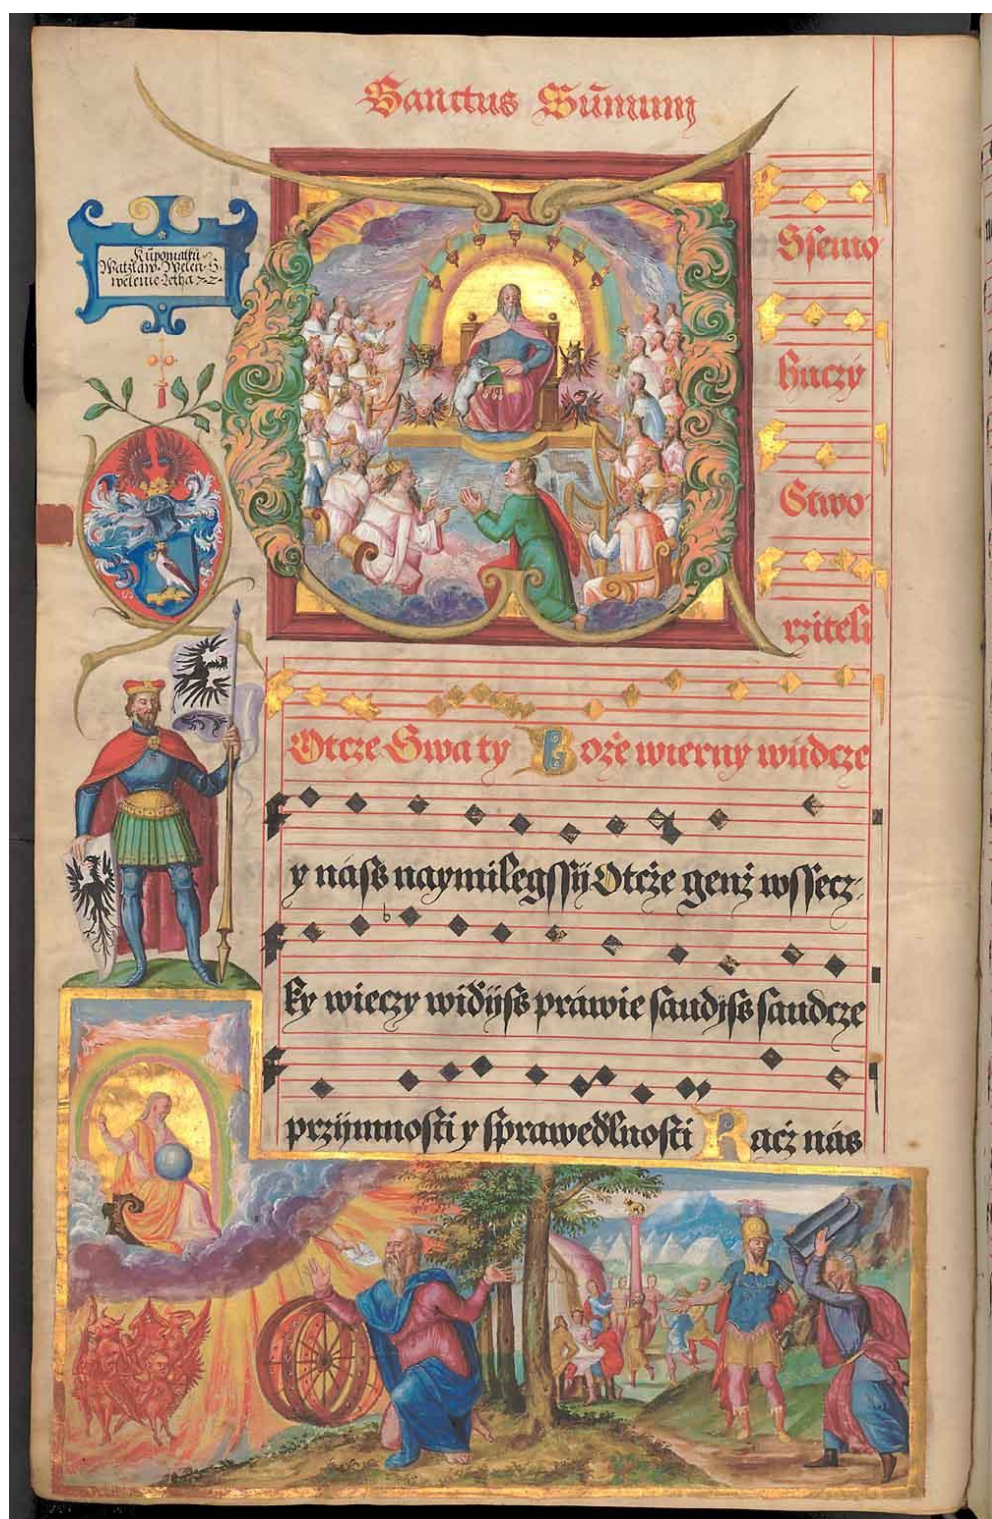 Sanctus Summum
Kupomatku
Watzlaw Welen S
welenie Letha 72
Ssemo
huczy
Stwo-
rziteli
Otcze Swa ty Boże wierny wudcze
y náss naymilegssÿ Otcże genż wssecz-
ky wieczy widÿss práwie saudjss saudcze
przÿmnosti y sprawedlnosti Racż nás